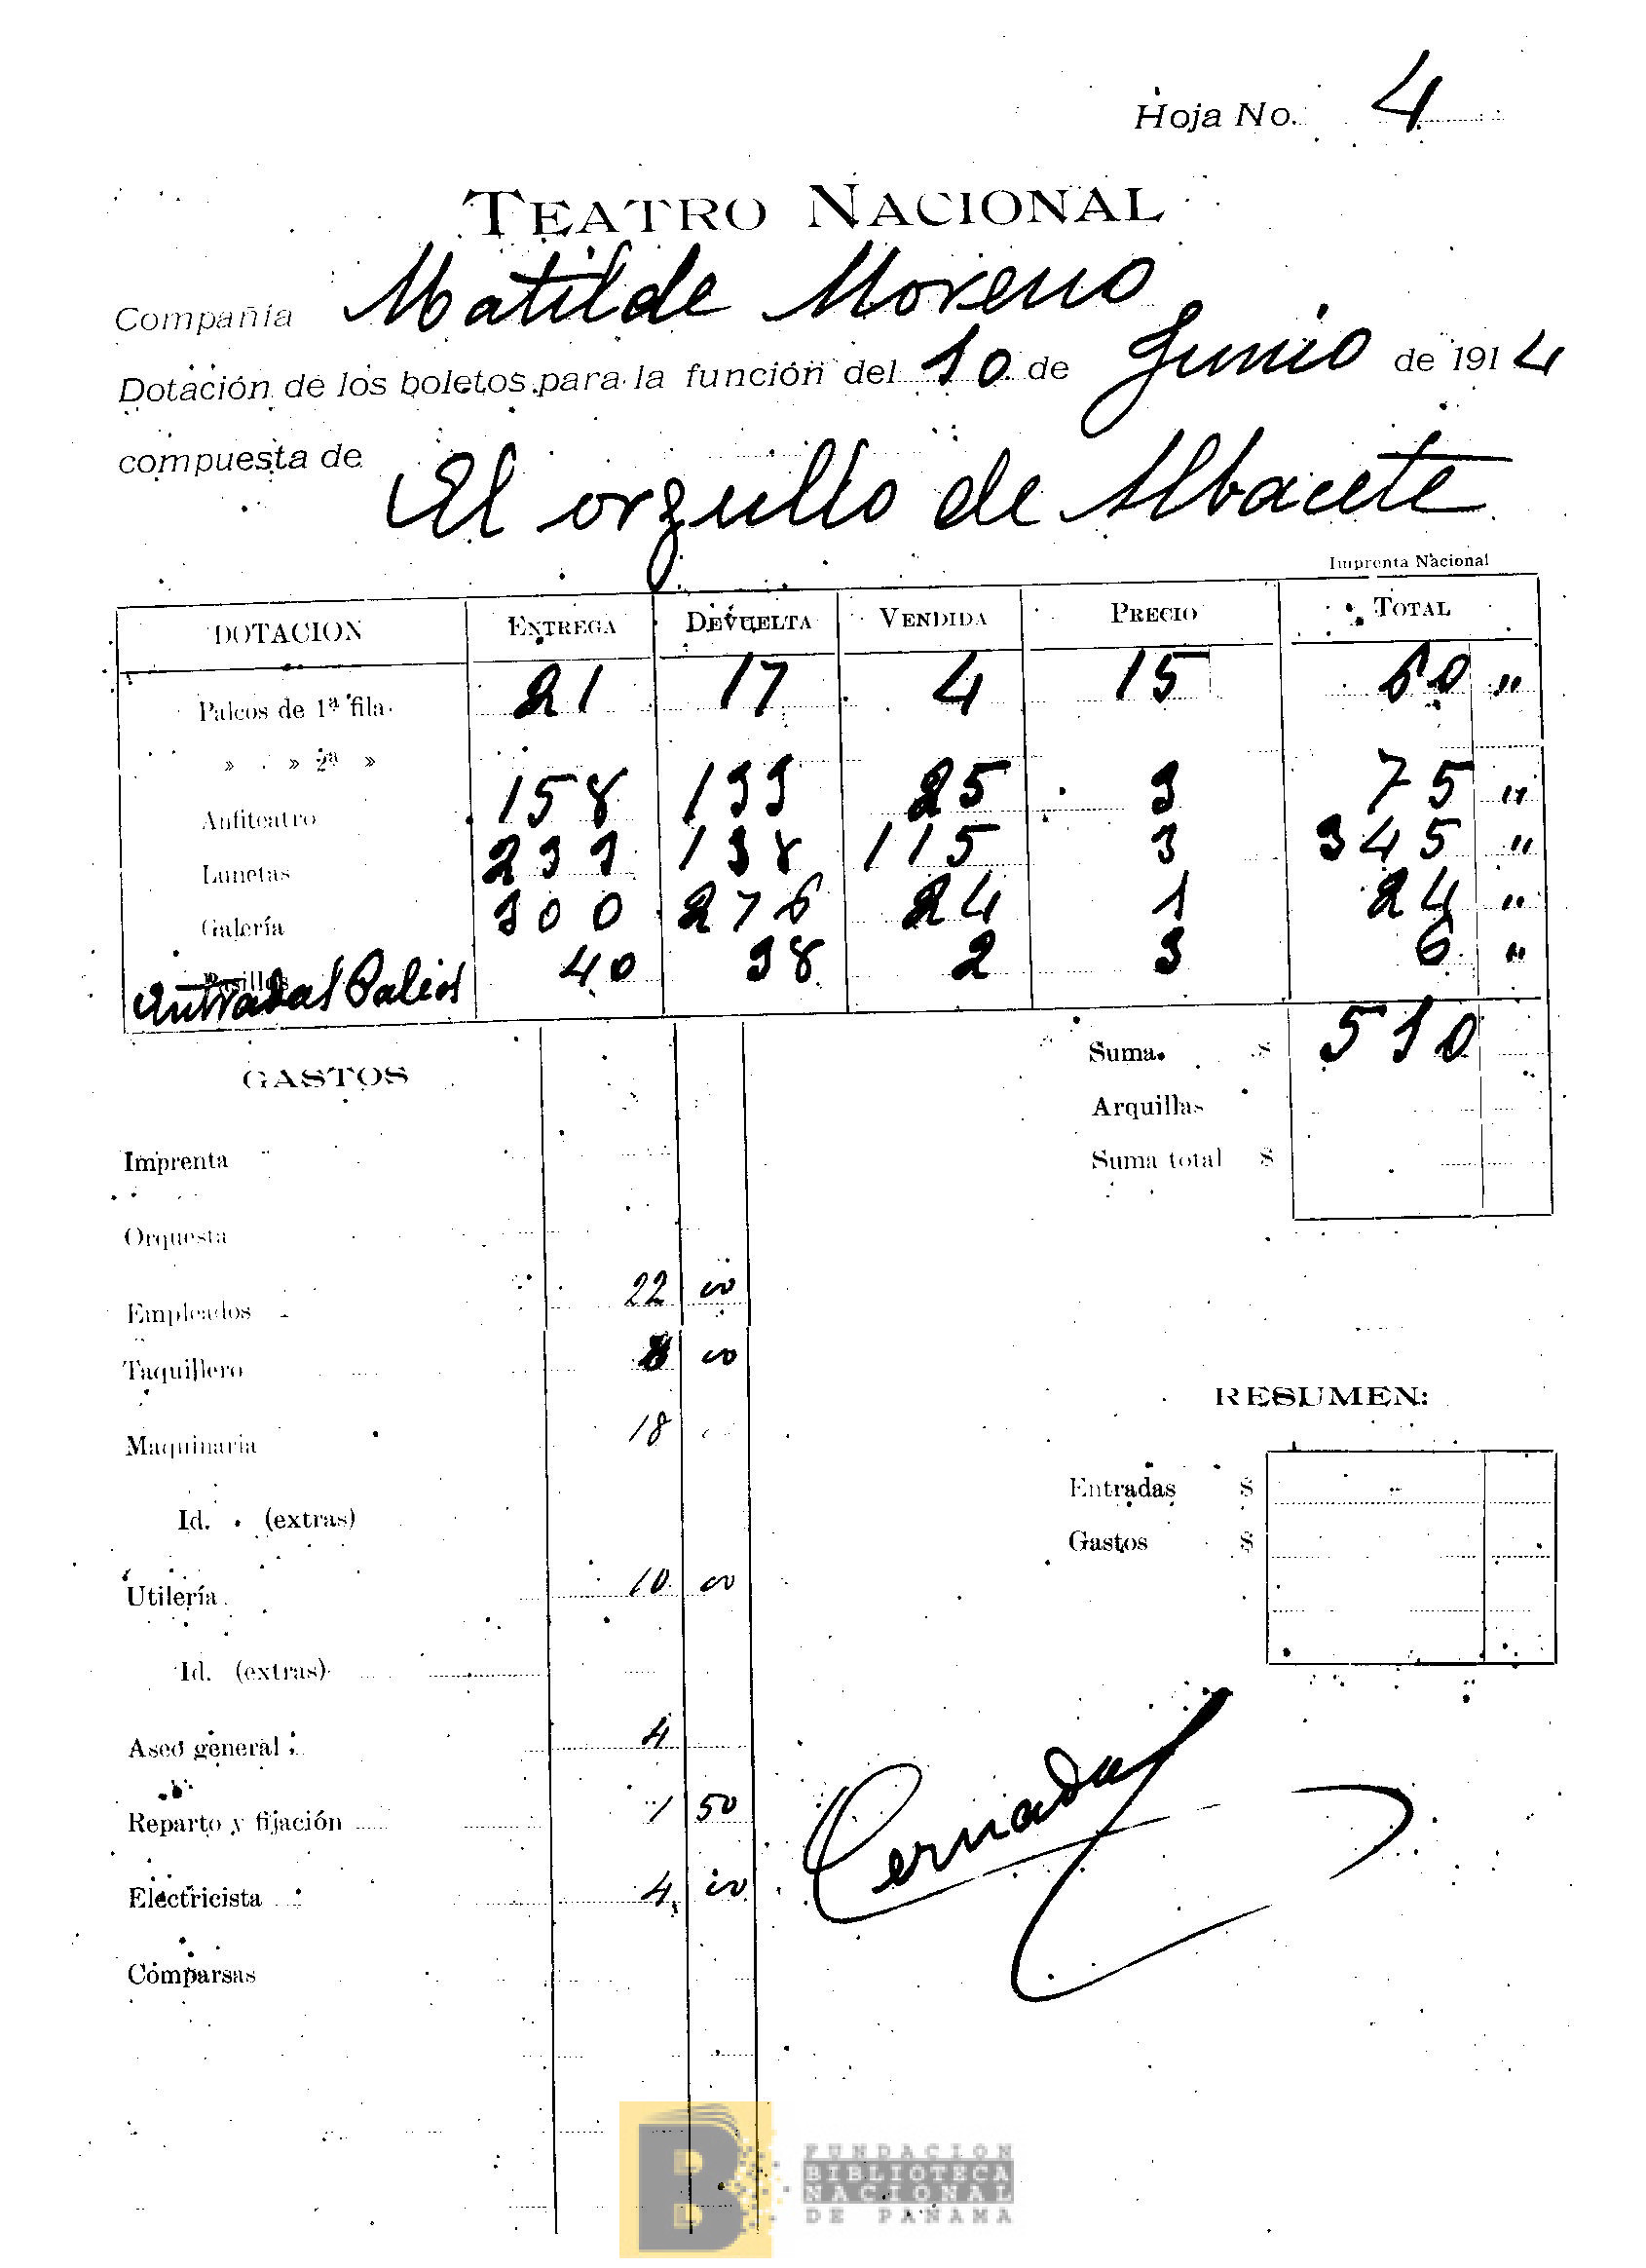 Hoja No. 4
TEATRO NACIONAL
Compañía Matilde Moreno
Dotación de los boletos para la función del 10 de Junio de 1914
compuesta de El orgullo de Albacete
Imprenta Nacional
DOTACION ENTREGA DEVUELTA VENDIDA PRECIO TOTAL
Palcos de 1ª fila 21 17 4 15 60 "
» » 2ª »
Anfiteatro 158 133 25 3 75 "
Lunetas 233 138 115 3 345 "
Galería 300 276 24 1 24 "
Entradas Palcos 40 38 2 3 6 "
Suma $ 510
GASTOS
Arquillas
Imprenta
Suma total $
Orquesta
Empleados 22 00
Taquillero 8 00
RESUMEN:
Maquinaria 18
Entradas $
Id. (extras)
Gastos $
Utilería 10 00
Id. (extras)
Aseo general 4
Reparto y fijación 1 50
Cernadas
Electricista 4 00
Comparsas
FUNDACION
BIBLIOTECA
NACIONAL
DE PANAMA